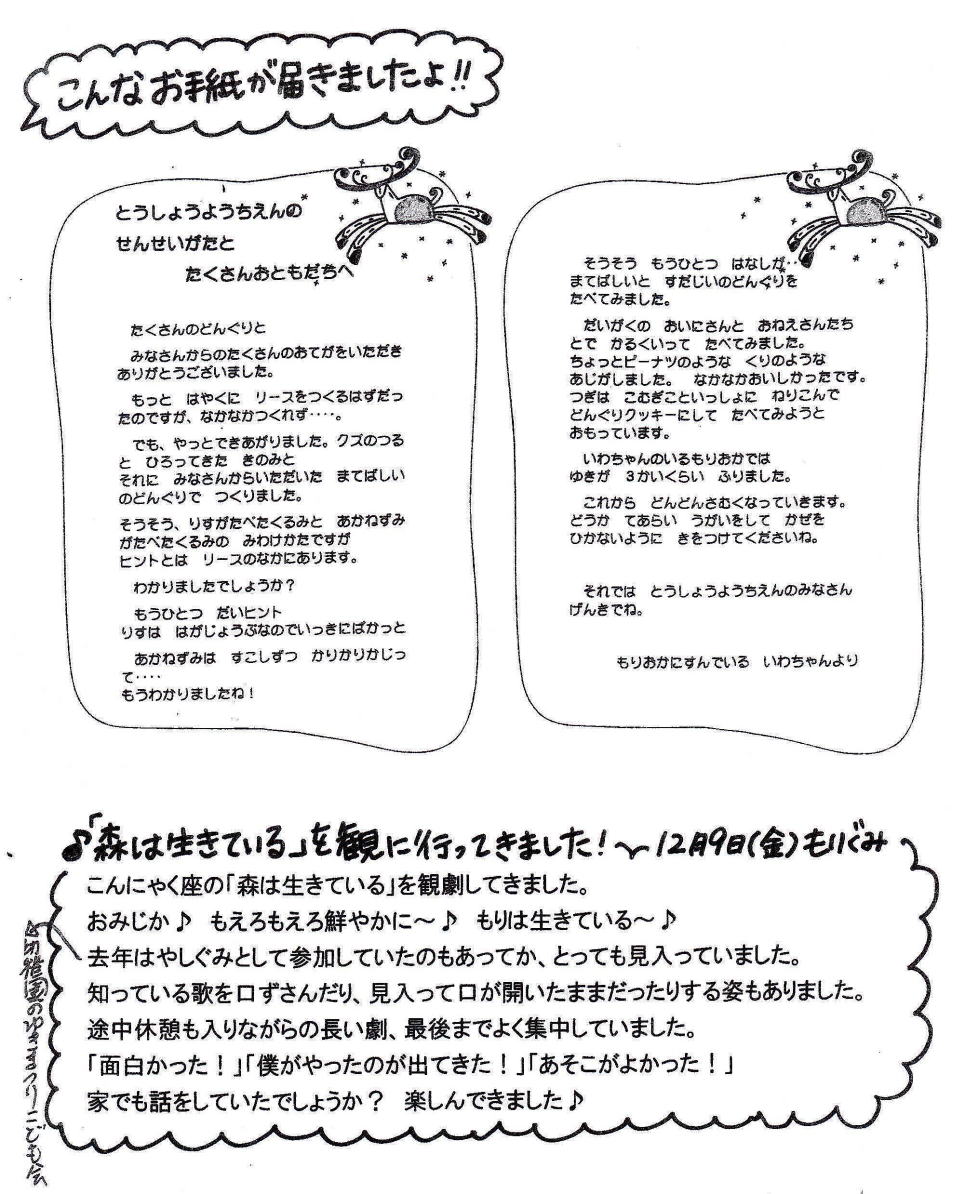 こんなお手紙が届きましたよ!!
とうしょうようちえんの
せんせいがたと
たくさんおともだちへ
たくさんのどんぐりと
みなさんからのたくさんのおてがをいただき
ありがとうございました。
もっと はやくに リースをつくるはずだっ
たのですが、なかなかつくれず‥‥。
でも、やっとできあがりました。クズのつる
と ひろってきた きのみと
それに みなさんからいただいた まてばしい
のどんぐりで つくりました。
そうそう、りすがたべたくるみと あかねずみ
がたべたくるみの みわけかたですが
ヒントとは リースのなかにあります。
わかりましたでしょうか？
もうひとつ だいヒント
りすは はがじょうぶなのでいっきにばかっと
あかねずみは すこしずつ かりかりかじっ
て‥‥
もうわかりましたね！
そうそう もうひとつ はなしが‥
まてばしいと すだじいのどんぐりを
たべてみました。
だいがくの おいにさんと おねえさんたち
とで かるくいって たべてみました。
ちょっとピーナツのような くりのような
あじがしました。 なかなかおいしかったです。
つぎは こむぎこといっしょに ねりこんで
どんぐりクッキーにして たべてみようと
おもっています。
いわちゃんのいるもりおかでは
ゆきが ３かいくらい ふりました。
これから どんどんさむくなっていきます。
どうか てあらい うがいをして かぜを
ひかないように きをつけてくださいね。
それでは とうしょうようちえんのみなさん
げんきでね。
もりおかにすんでいる いわちゃんより
♪「森は生きている」を観に行ってきました！〜12月9日(金)もりぐみ
こんにゃく座の「森は生きている」を観劇してきました。
おみじか♪ もえろもえろ鮮やかに〜♪ もりは生きている〜♪
去年はやしぐみとして参加していたのもあってか、とっても見入っていました。
知っている歌を口ずさんだり、見入って口が開いたままだったりする姿もありました。
途中休憩も入りながらの長い劇、最後までよく集中していました。
「面白かった！」「僕がやったのが出てきた！」「あそこがよかった！」
家でも話をしていたでしょうか？ 楽しんできました♪
☆幼稚園のゆきまつりこども会